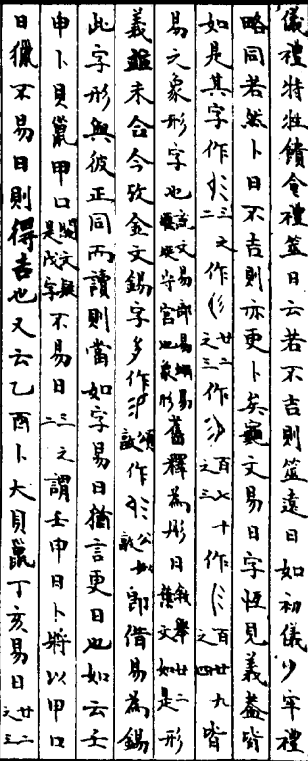 儀禮特牲饋食禮筮日云若不吉則筮遠日如初儀少牢禮
略同若然卜日不吉則亦更卜矣龜文易日字恆見義蓋皆
如是其字作三之二作廿二之三作百七十之三作百廿九之四皆
易之象形字也說文易部易蜥易蝘蜓守宮也象形舊釋為彤日敘舉廿二舊文如是形
義並未合今攷金文錫字多作頌敦作公姒敦即借易為錫
此字形與彼正同而讀則當如字易日猶言更日也如云壬
申卜貝巤甲口闕文疑是戊字不易日三之二謂壬申日卜將以甲口
日獵不易日則得吉也又云乙酉卜大貝巤丁亥易日廿二之三